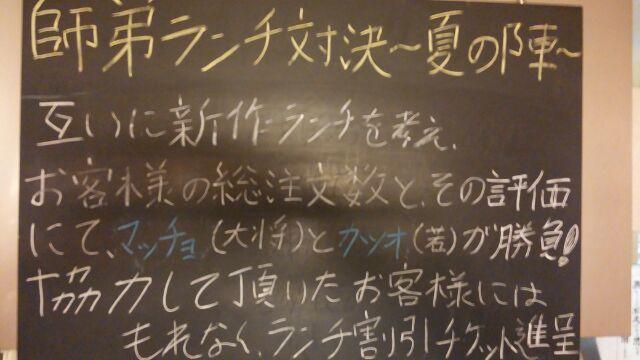 師弟ランチ対決～夏の陣～
互いに新作ランチを考え、
お客様の総注文数と、その評価
にて、マッチョ(大将)とカツオ(若)が勝負!
協力して頂いたお客様には
もれなく、ランチ割引チケット進呈